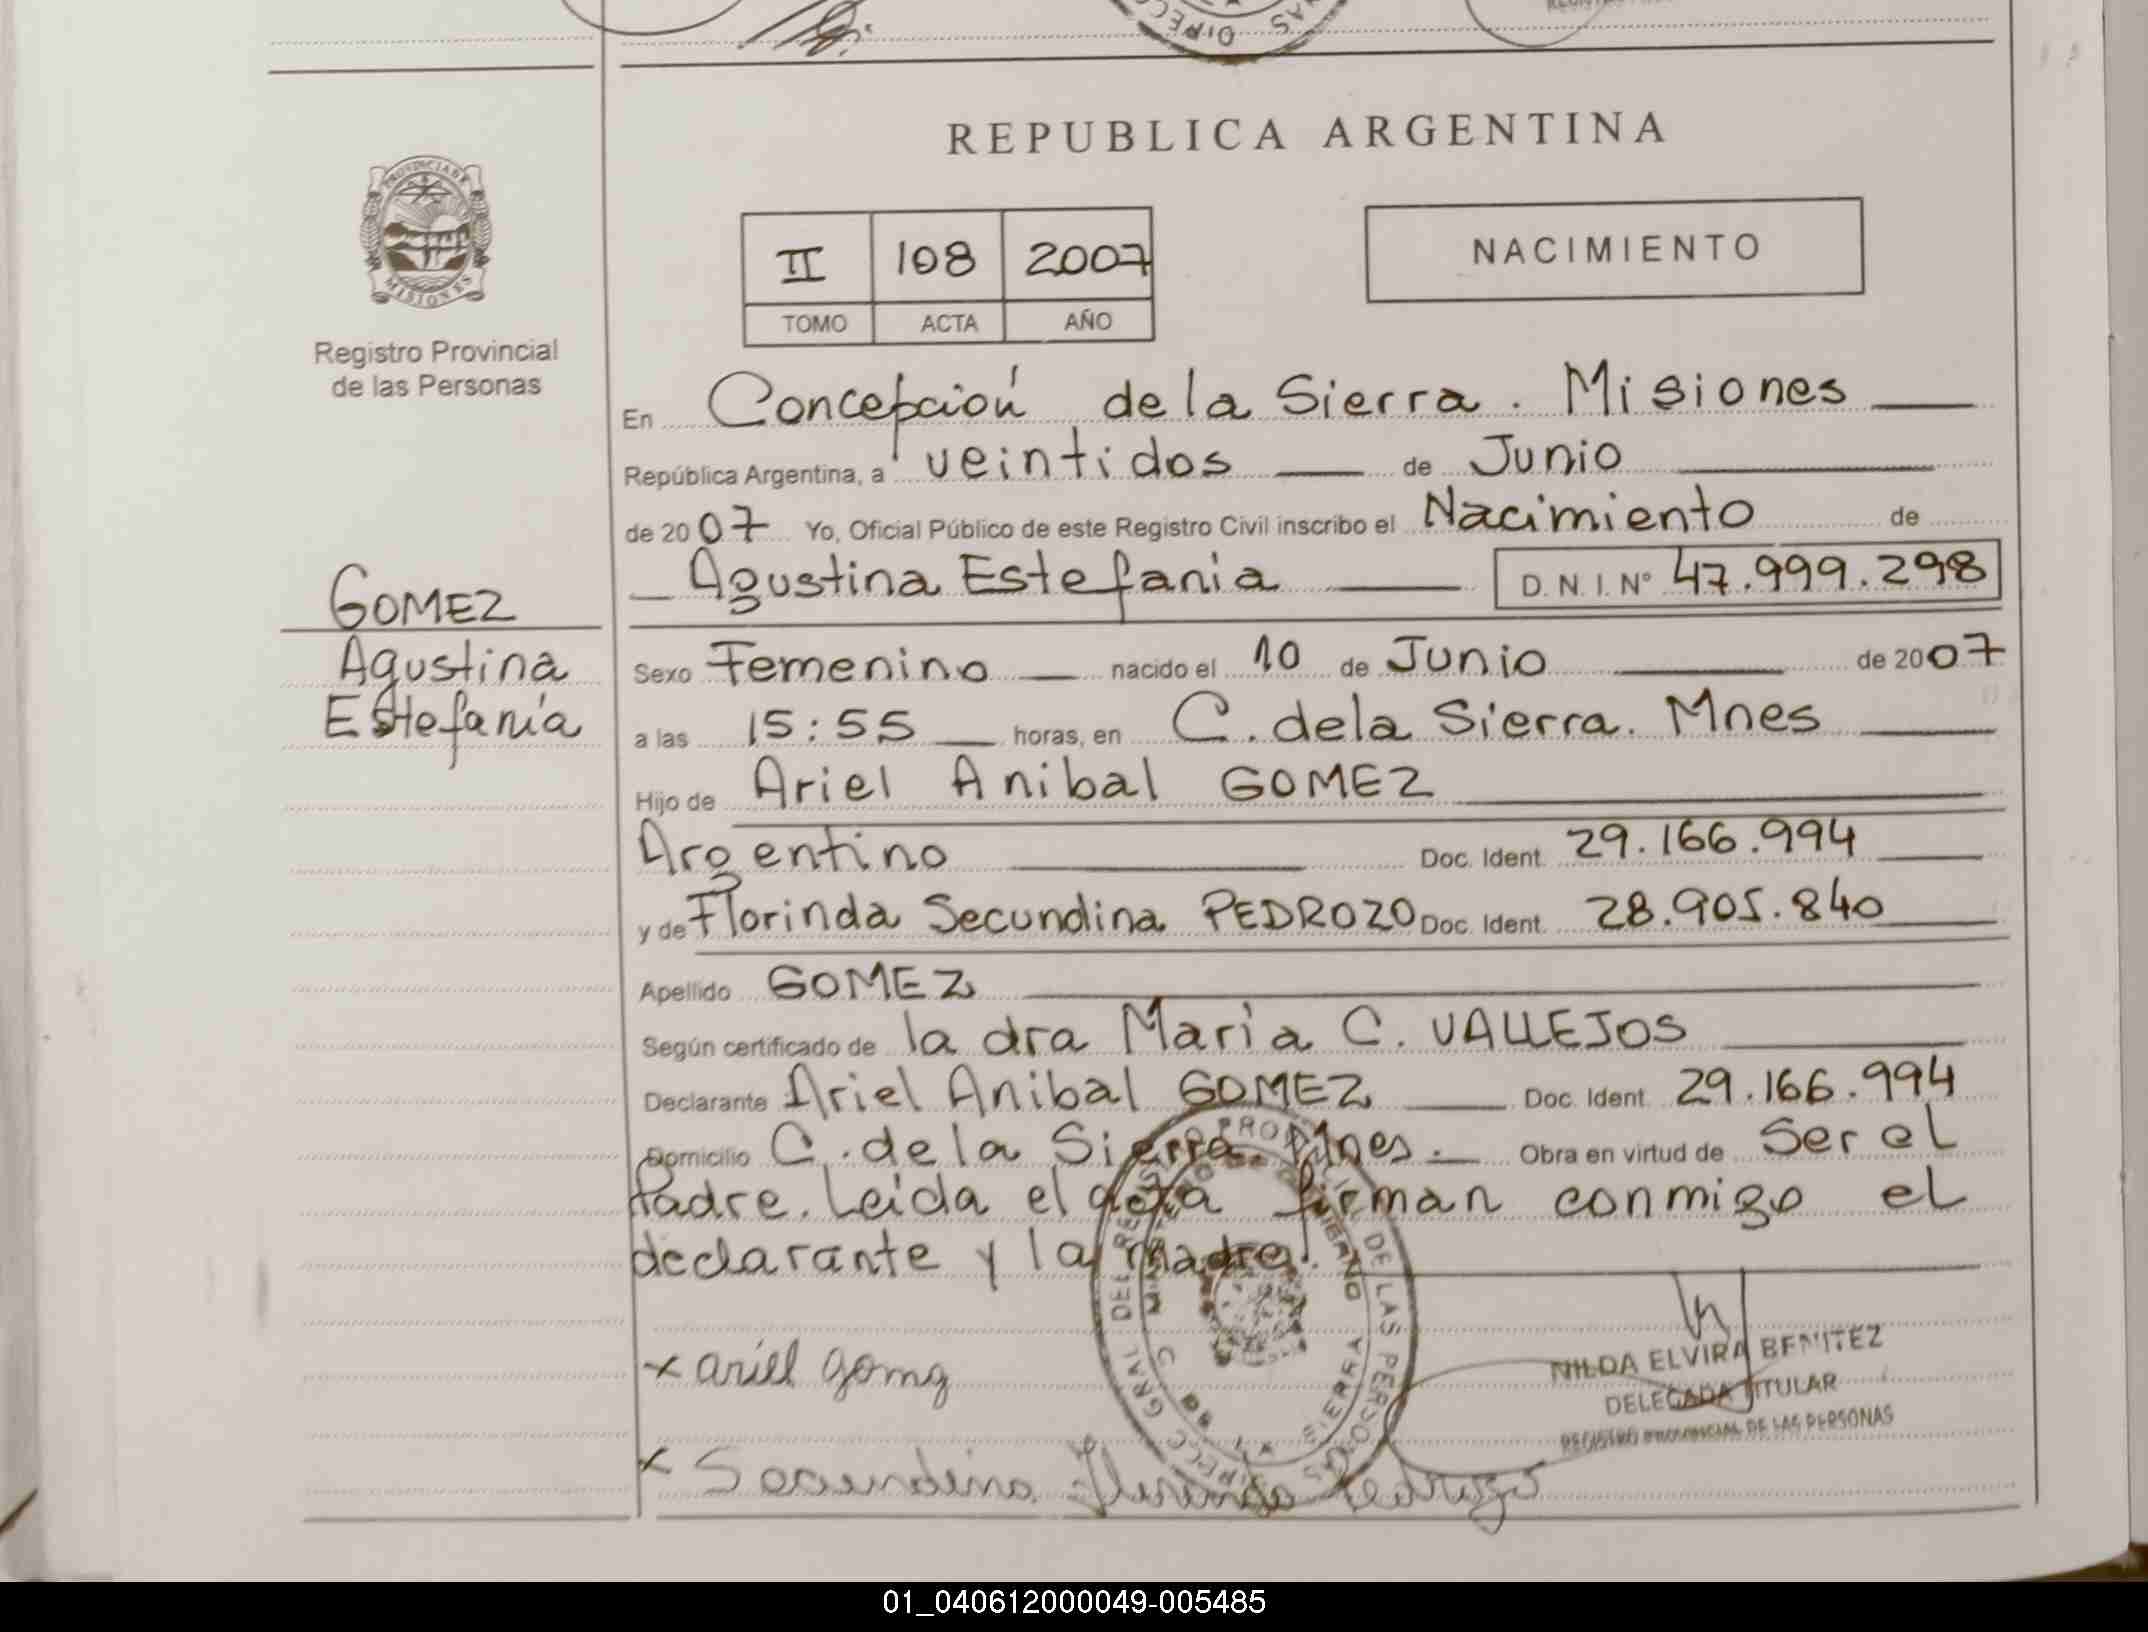 REPUBLICA ARGENTINA
PROVINCIA DE
MISIONES
Registro Provincial
de las Personas
II 108 2007
TOMO ACTA AÑO
NACIMIENTO
En Concepción de la Sierra. Misiones
República Argentina, a veintidos de Junio
de 2007 Yo, Oficial Público de este Registro Civil inscribo el Nacimiento de
Agustina Estefania D.N.I. Nº 47.999.298
GOMEZ
Agustina
Estefanía
Sexo Femenino nacido el 10 de Junio de 2007
a las 15:55 horas, en C. de la Sierra. Mnes
Hijo de Ariel Anibal GOMEZ
Argentino Doc. Ident. 29.166.994
y de Florinda Secundina PEDROZO Doc. Ident. 28.905.840
Apellido GOMEZ
Según certificado de la dra Maria C. VALLEJOS
Declarante Ariel Anibal GOMEZ Doc. Ident. 29.166.994
Domicilio C. de la Sierra. Mnes. Obra en virtud de Ser el
Padre. Leida el acta firman conmigo el
declarante y la madre.
x ariel gomez
x Secundina Florinda Pedrozo
NILDA ELVIRA BENITEZ
DELEGADA TITULAR
REGISTRO PROVINCIAL DE LAS PERSONAS
01_040612000049-005485